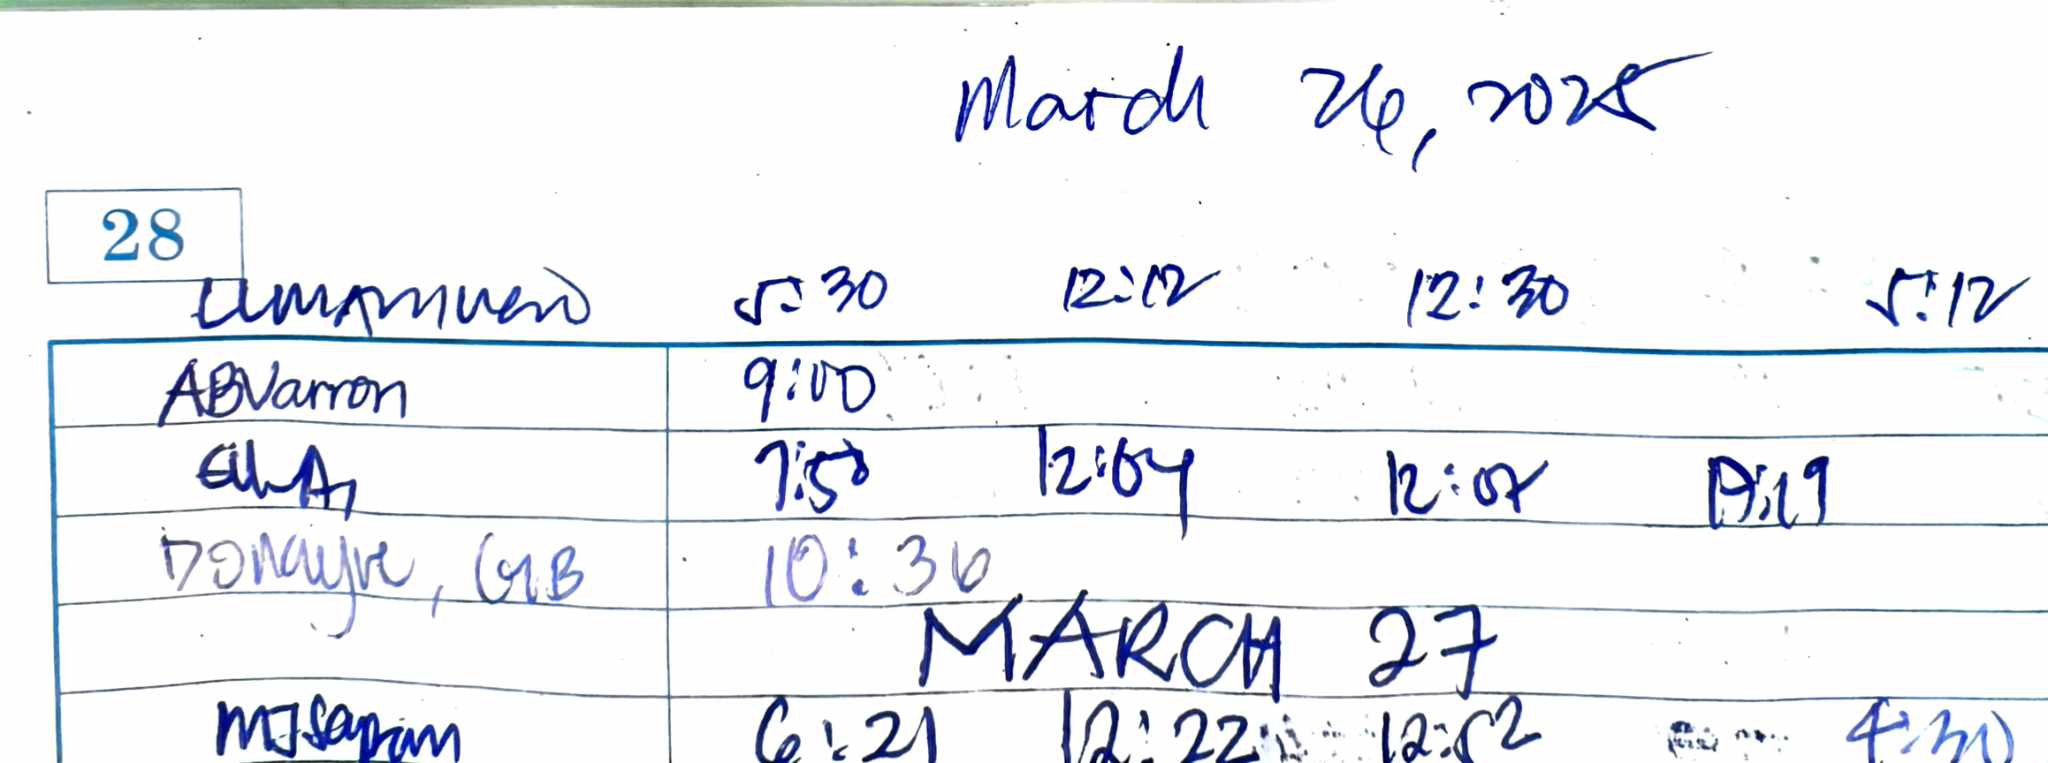 March 26, 2025
28
5:30 12:12 12:30 5:12
ABVarron 9:00
7:50 12:04 12:07
Donayre, GB 10:36
MARCH 27
6:21 12:22 12:52 4:30